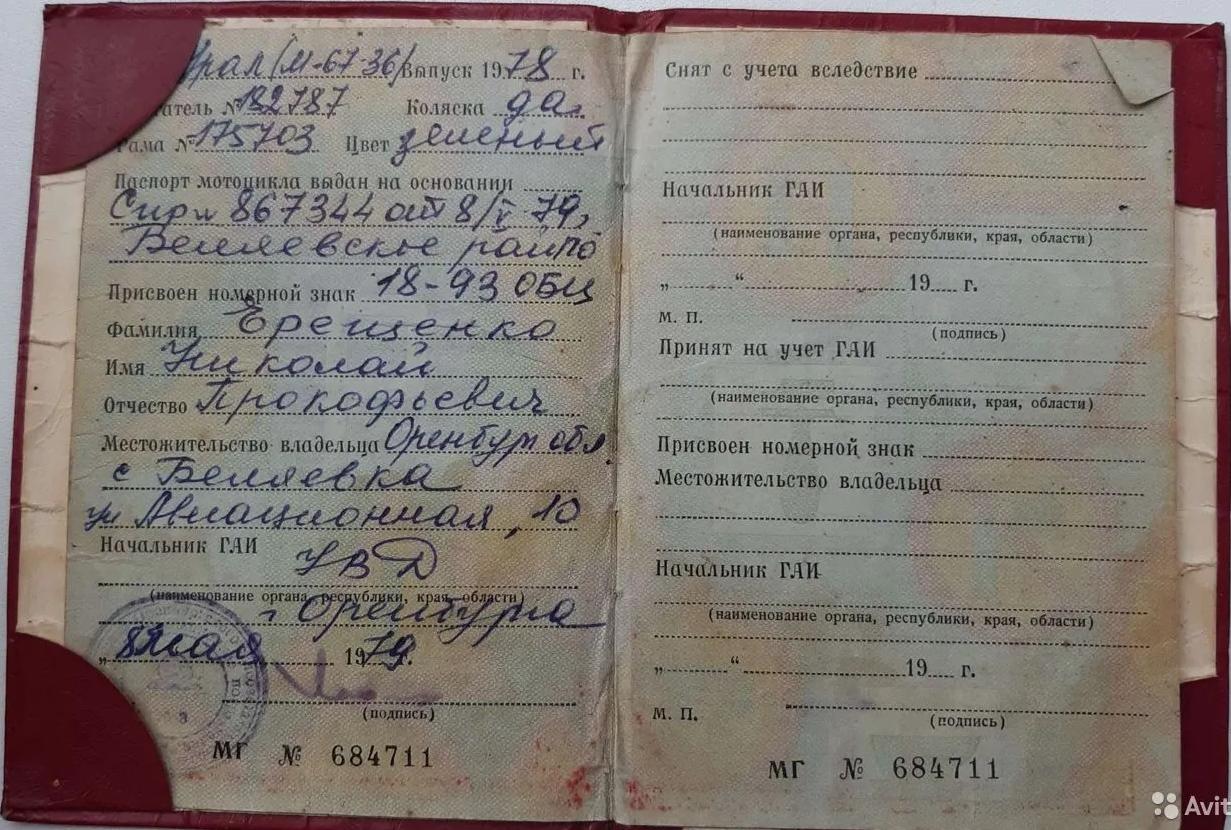 Урал (М-67-36) Выпуск 1978 г.
атель № 182787 Коляска да.
Рама № 175703 Цвет зеленый
Паспорт мотоцикла выдан на основании
867344 от 8/V-79,
Беляевское райпо
Присвоен номерной знак 18-93 ОБЦ
Фамилия Ерещенко
Имя Николай
Отчество Прокофьевич
Местожительство владельца Оренбург обл.
с Беляевка
ул Авиационная, 10
Начальник ГАИ УВД
(наименование органа, республики, края, области)
г Оренбурга
„ 8 мая 1979 г.
(подпись)
МГ № 684711
Снят с учета вследствие
Начальник ГАИ
(наименование органа, республики, края, области)
„ “ 19 г.
М. П.
(подпись)
Принят на учет ГАИ
(наименование органа, республики, края, области)
Присвоен номерной знак
Местожительство владельца
Начальник ГАИ
(наименование органа, республики, края, области)
„ “ 19 г.
М. П.
(подпись)
МГ № 684711
Avit